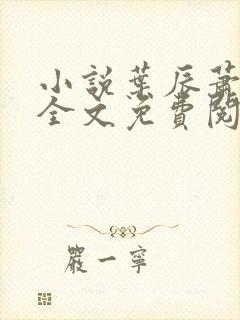 小說葉辰蕭
全文免費閱
嚴一寧